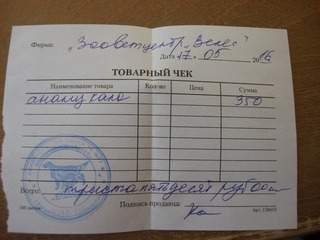 Фирма: „Зооветцентр „Велес"
Дата 17. 05 2016
ТОВАРНЫЙ ЧЕК
Наименование товара Кол-во Цена Сумма
анализ кала 350
Всего: триста пятьдесят рублей
Подпись продавца